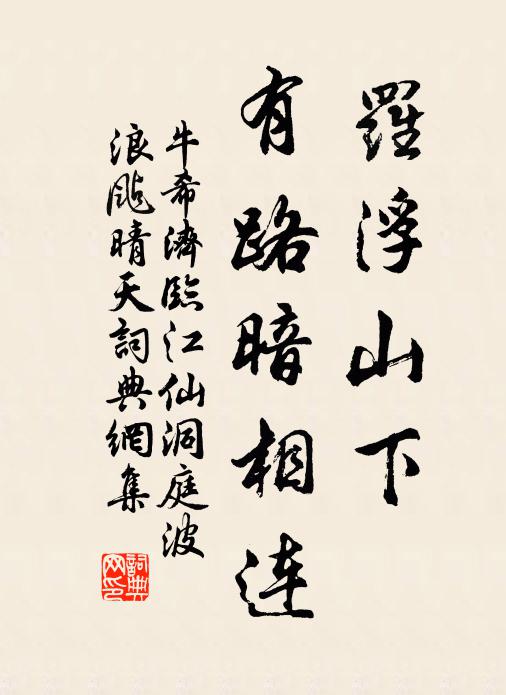 羅浮山下
有路暗相連
牛希濟臨江仙洞庭波
浪颭晴天詞典網集
詞典
网印